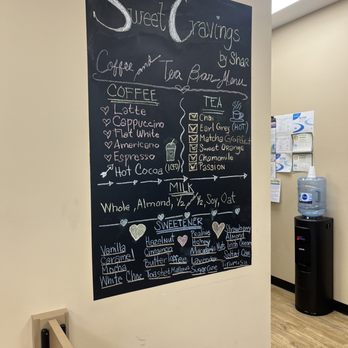 Sweet Cravings
by Shar
Coffee and Tea Bar Menu
COFFEE
Latte
Cappuccino
Flat White
Americano
Espresso
Hot Cocoa
TEA
Chai
Earl Grey (HOT)
Matcha
Sweet Orange
Chamomile
Passion
MILK
Whole, Almond, ½ & ½, Soy, Oat
SWEETENER
Vanilla
Caramel
Mocha
White Choc
Hazelnut
Cinnamon
Butter
Toasted Mallow
Praline
Honey
Lavender
Sugar Cane
Strawberry
Almond
Irish Cream
Salted Cam